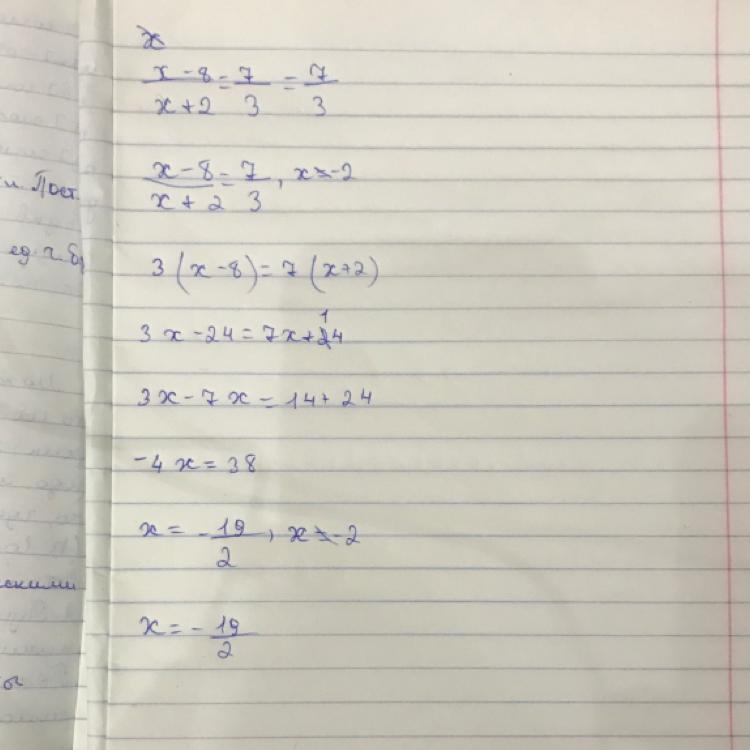 x
x-8/x+2 = 7/3 = 7/3
x-8/x+2 = 7/3, x≠-2
3(x-8)=7(x+2)
3x-24=7x+14
3x-7x=14+24
-4x=38
x=-19/2, x≠-2
x=-19/2
и. Пост.
ед. ч.
скими